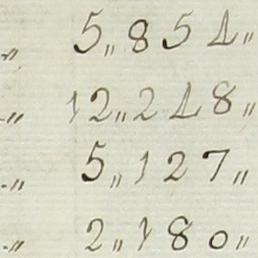 „ 5„854„
„ 12„248„
„ 5„127„
„ 2„180„